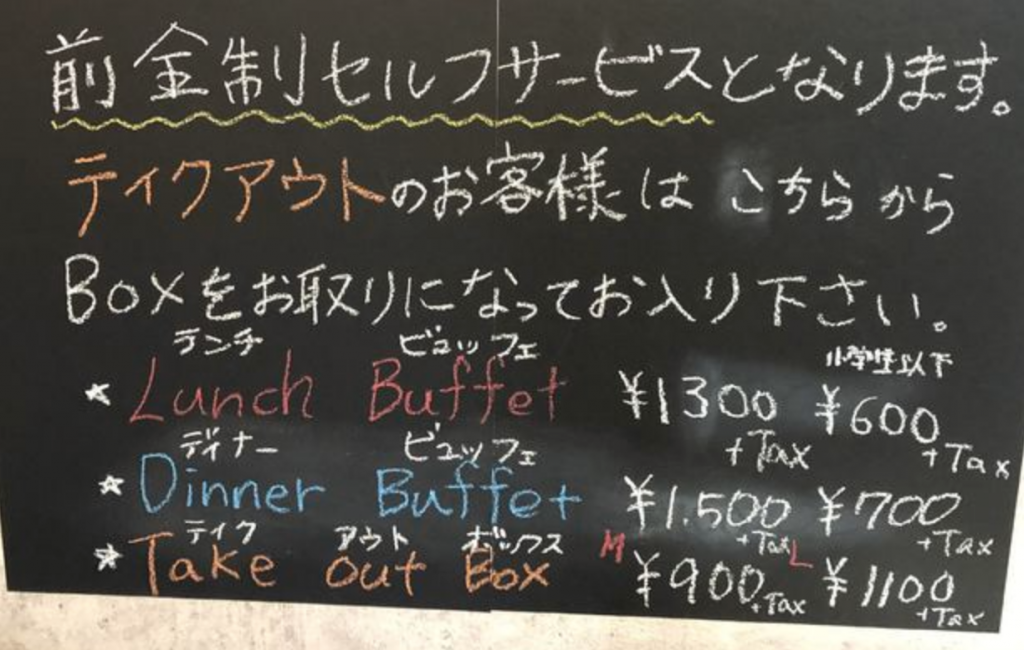 前金制セルフサービスとなります。
テイクアウトのお客様は こちらから
Boxをお取りになってお入り下さい。
ランチ ビュッフェ 小学生以下
★ Lunch Buffet ¥1300 +Tax ¥600 +Tax
ディナー ビュッフェ
★ Dinner Buffet ¥1.500 +Tax ¥700 +Tax
テイク アウト ボックス
★ Take out Box M ¥900 +Tax L ¥1100 +Tax